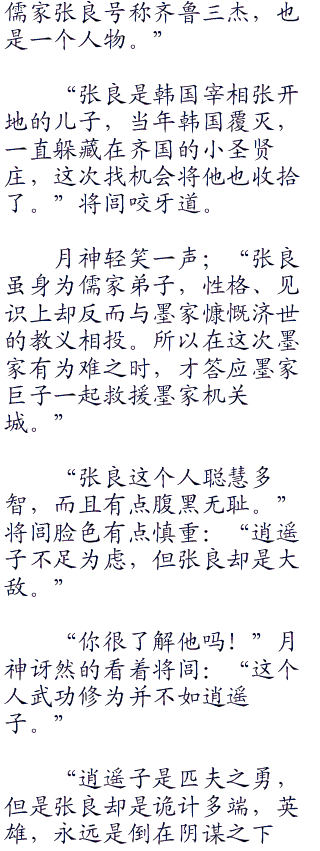 儒家张良号称齐鲁三杰，也
是一个人物。”
“张良是韩国宰相张开
地的儿子，当年韩国覆灭，
一直躲藏在齐国的小圣贤
庄，这次找机会将他也收拾
了。”将闾咬牙道。
月神轻笑一声；“张良
虽身为儒家弟子，性格、见
识上却反而与墨家慷慨济世
的教义相投。所以在这次墨
家有为难之时，才答应墨家
巨子一起救援墨家机关
城。”
“张良这个人聪慧多
智，而且有点腹黑无耻。”
将闾脸色有点慎重：“逍遥
子不足为虑，但张良却是大
敌。”
“你很了解他吗！”月
神讶然的看着将闾：“这个
人武功修为并不如逍遥
子。”
“逍遥子是匹夫之勇，
但是张良却是诡计多端，英
雄，永远是倒在阴谋之下